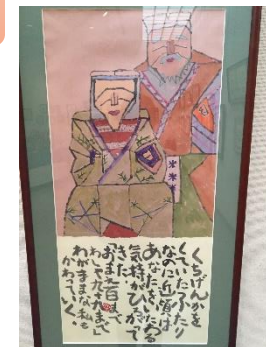 くちげんかを
くいたふたり
なのに近頃は
あなたをいたわる
気持がひろがって
きた
おまえ百まで
わしゃ九十九まで
わがままな私も
かわっていく。